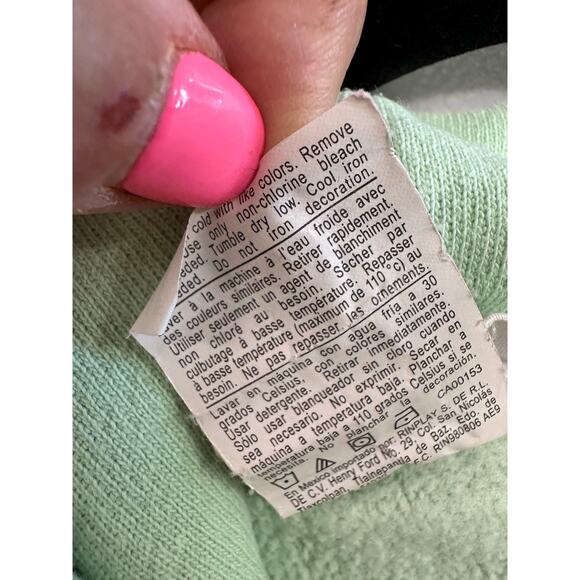 cold with like colors. Remove
Use only non-chlorine bleach
eded. Tumble dry low. Cool iron
eded. Do not iron decoration.
aver à la machine à l'eau froide avec
des couleurs similaires. Retirer rapidement.
Utiliser seulement un agent de blanchiment
non chloré au besoin. Sécher par
culbutage à basse température. Repasser
à basse température (maximum de 110°c) au
besoin. Ne pas repasser les ornements.
Lavar en máquina con agua fría a 30
grados Celsius, con colores similares.
Usar detergente. Retirar inmediatamente.
Sólo usar blanqueador sin cloro cuando
sea necesario. No exprimir. Secar en
máquina a temperatura baja. Planchar
temperatura baja a 110 grados Celsius si se
necesita. No planchar decoración.
CA00153
En México importado por: RINPLAY S. DE R.L.
DE C.V. Henry Ford No. 29, Col. San Nicolás
Tlaxcolpan, Tlalnepantla de Baz, Edo. de
C. RIN980806 AE9